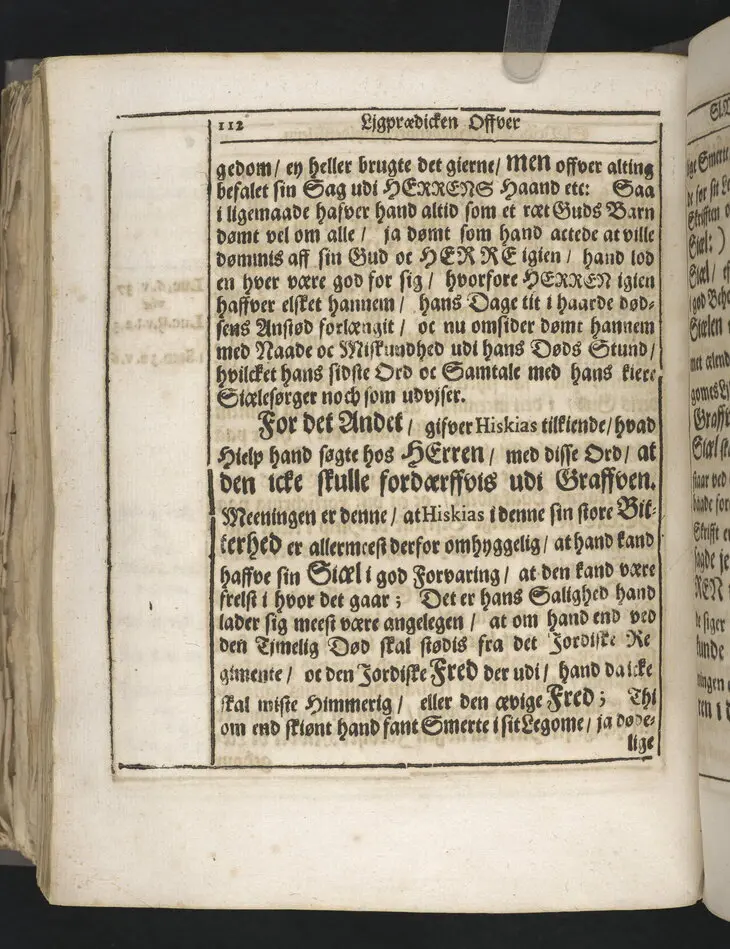 112 Ljgprædicken Offver
gedom / ey heller brugte det gierne / men offver alting
befalet sin Sag udi HERRENS Haand etc: Saa
i ligemaade hafver hand altid som et ræt Guds Barn
dømt vel om alle / ja dømt som hand actede at ville
dømmis aff sin Gud oc HERRE igien / hand lod
en hver være god for sig / hvorfore HERREN igien
haffver elsket hannem / hans Dage tit i haarde død-
sens Anstød forlængit / oc nu omsider dømt hannem
med Naade oc Miskundhed udi hans Døds Stund /
hvilcket hans sidste Ord oc Samtale med hans kiere
Siælesørger noch som udvjser.
For det Andet / gifver Hiskias tilkiende / hvad
Hielp hand søgte hos HErren / med disse Ord / at
den icke skulle fordærffvis udi Graffven.
Meeningen er denne / at Hiskias i denne sin store Bit-
terhed er allermeest derfor omhyggelig / at hand kand
haffve sin Siæl i god Forvaring / at den kand være
frelst i hvor det gaar ; Det er hans Salighed hand
lader sig meest være angelegen / at om hand end ved
den Tjmelig Død skal stødis fra det Jordiske Re
gimente / oc den Jordiske Fred der udi / hand da icke
skal miste Himmerig / eller den ævige Fred ; Thi
om end skiønt hand fant Smerte i sit Legome / ja døde-
lige